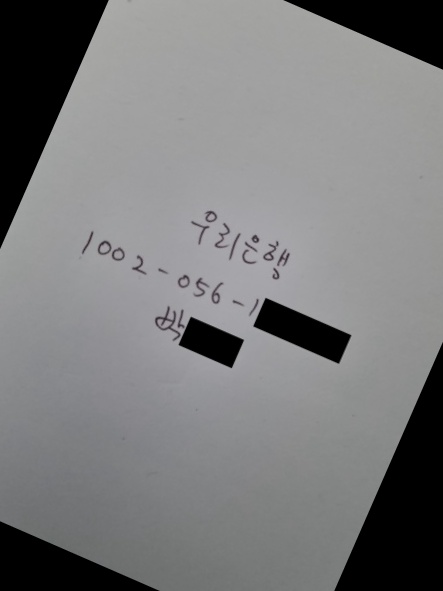 우리은행
1002-056-1
박